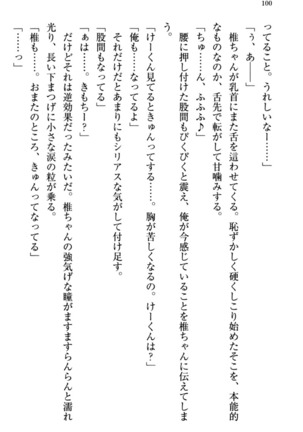 100
ってること。うれしいなー……」
「ぅ、あ——」
椎ちゃんが乳首にまた舌を這わせてくる。恥ずかしく硬くしこり始めたそこを、本能的
なものなのか、舌先で転がして甘噛みする。
「ちゅ……ん、ふふふ♪」
腰に押し付けた股間もぴくぴくと震え、俺が今感じていることを椎ちゃんに伝えてしま
う。
「けーくん見てるときゅんってする……。胸が苦しくなるの。けーくんは？」
「俺も……なってるよ」
それだけだとあまりにもシリアスな気がして付け足す。
「股間もなってる」
「ぁは……。きもちー？」
だけどそれは逆効果だったみたいだ。椎ちゃんの強気げな瞳がますますらんらんと濡れ
光り、長い下まつげに小さな涙の粒が乗る。
「椎も……。おまたのところ、きゅんってなってる」
「……っ」